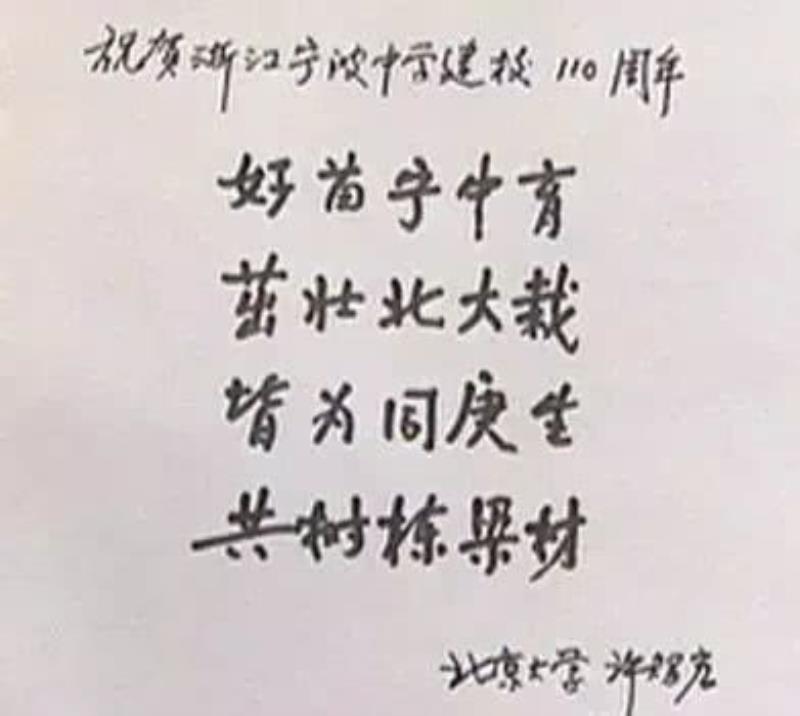 祝贺浙江宁波中学建校110周年
好苗宁中育
茁壮北大栽
皆为同庚生
共树栋梁材
北京大学 许智宏